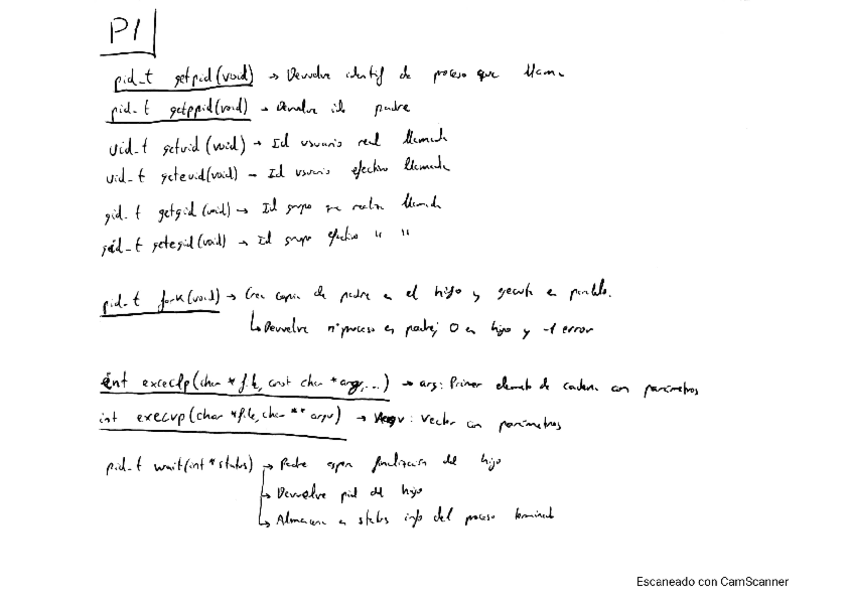 P1
pid_t getpid(void) → Devuelve identif de proceso que llama
pid_t getppid(void) → Devuelve id padre
uid_t getuid(void) → Id usuario real llamada
uid_t geteuid(void) → Id usuario efectivo llamada
gid_t getgid(void) → Id grupo que realiza llamada
gid_t getegid(void) → Id grupo efectivo " "
pid_t fork(void) → Crea copia de padre en el hijo y ejecuta en paralelo.
↳ Devuelve nº proceso en padre, 0 en hijo y -1 error
int execlp(char * file, const char * arg, ...) → arg: Primer elemento de cadena con parámetros
int execvp(char * file, char ** argv) → Argv: Vector con parámetros
pid_t wait(int * status) → Padre espera finalización del hijo
↳ Devuelve pid del hijo
↳ Almacena en status info del proceso terminado
Escaneado con CamScanner